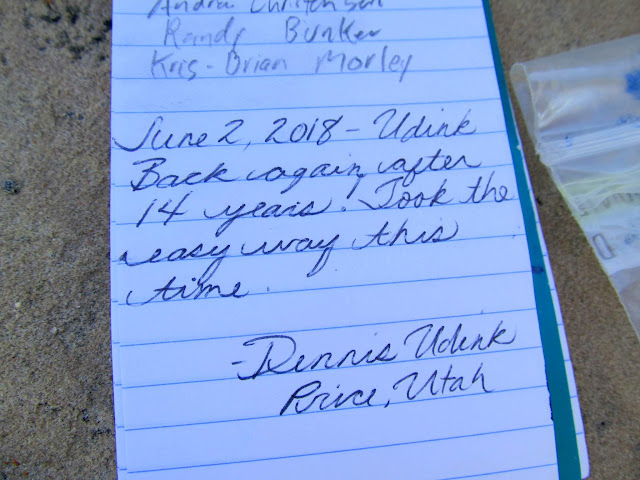 Andrea Christensen
Randy Bunker
Kris-Brian Morley
June 2, 2018 - Udink
Back again after
14 years! Took the
easy way this
time.
-Dennis Udink
Price, Utah